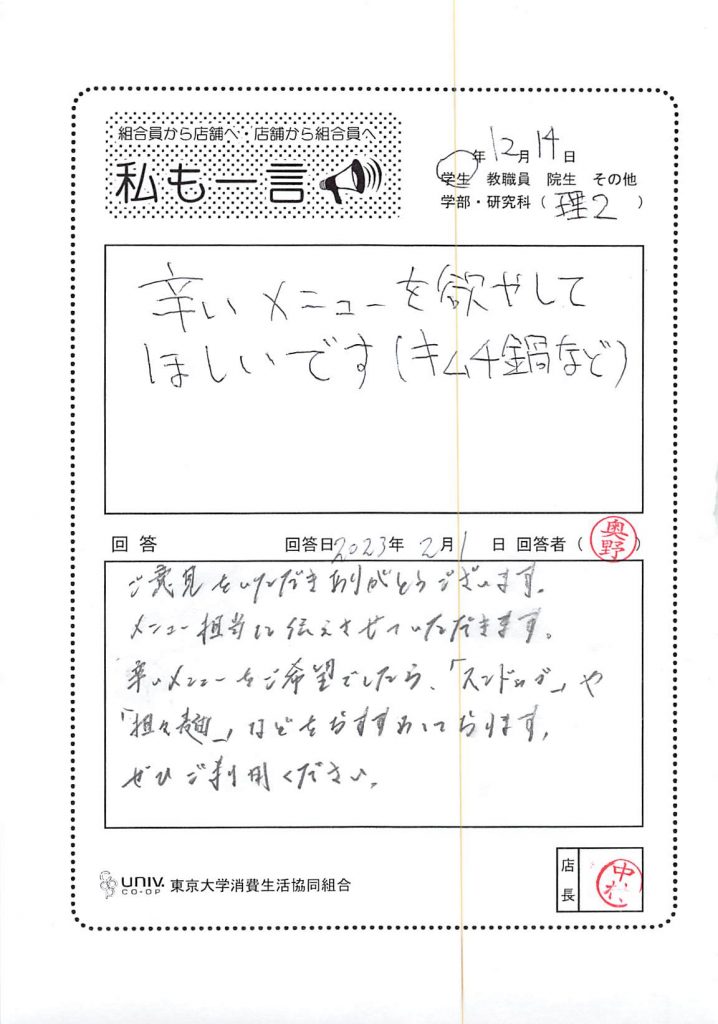 組合員から店舗へ・店舗から組合員へ
私も一言
年12月14日
学生 教職員 院生 その他
学部・研究科（理2）
辛いメニューを欲やして
ほしいです(キムチ鍋など)
回答 回答日2023年 2月1日 回答者（奥野）
ご意見をいただきありがとうございます。
メニュー担当に伝えさせていただきます。
辛いメニューをご希望でしたら、「スンドゥブ」や
「担々麺」、などをおすすめしております。
ぜひご利用ください。
UNIV. CO-OP 東京大学消費生活協同組合
店長